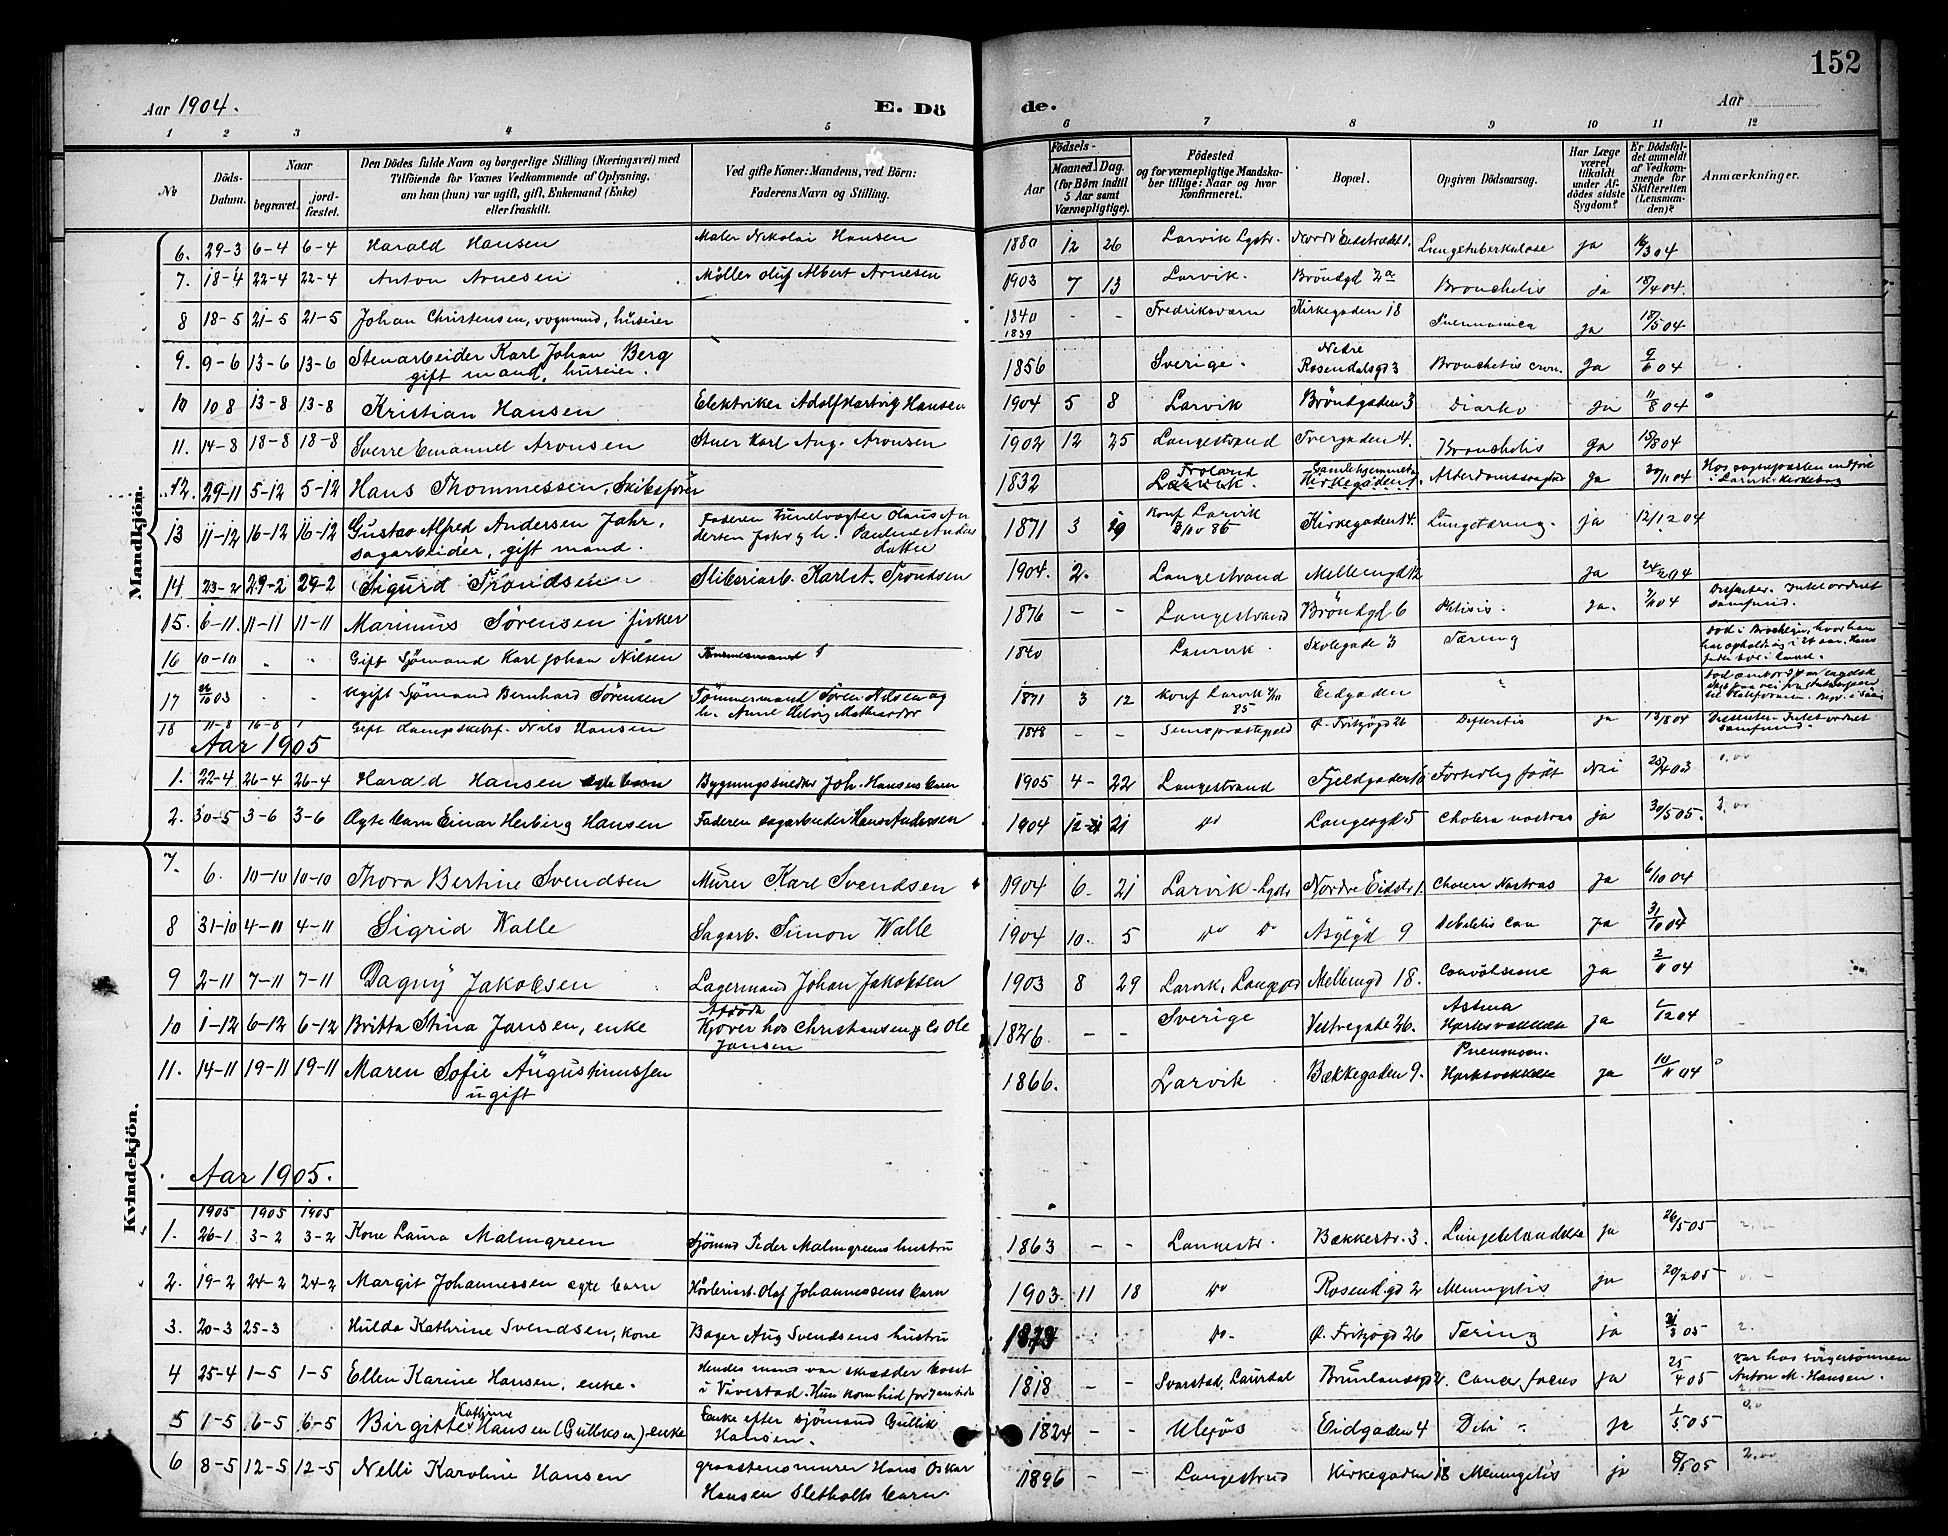 152
Aar 1904.
E. Dö
de.
Aar
1 2 3 4 5 6 7 8 9 10 11 12
No
Döds-Datum.
Naar
begravet.
jord-fæstet.
Den Dödes fulde Navn og borgerlige Stilling (Næringsvei) med
Tilföiende for Voxnes Vedkommende af Oplysning,
om han (hun) var ugift, gift, Enkemand (Enke)
eller fraskilt.
Ved gifte Koner: Mandens, ved Börn:
Faderens Navn og Stilling.
Födsels-
Aar
Maaned. Dag.
(for Börn indtil
5 Aar samt
Værnepligtige).
Födested
og for værnepligtige Mandska-
ber tillige: Naar og hvor
konfirmeret.
Bopæl.
Opgiven Dödsaarsag.
Har Læge
været
tilkaldt
under Af-
dödes sidste
Sygdom?
Er Dödsfal-
det anmeldt
af Vedkom-
mende for
Skifteretten
(Lensman-
den)?
Anmærkninger.
Mandkjön.
6. 29-3 6-4 6-4 Harald Hansen Maler Nikolai Hansen 1880 12 26 Larvik Lgstr. Lungetuberkulose ja
7. 18-4 22-4 22-4 Anton Arnesen Møller Oluf Albert Arnesen 1903 7 13 Larvik. Bröndgd 2a Bronchitis ja 18/4 04.
8 18-5 21-5 21-5 Johan Christensen, vognmand, huseier 1840 1839 - - Fredriksværn Kirkegaden 18 Pneumonica ja 18/5 04
9. 9-6 13-6 13-6 Stenarbeider Karl Johan Berg
gift mand, huseier. 1856 Sverige. Nedre Rosendalsgd 3 Bronchitis cron. Ja 9/6 04
10 10 8 13-8 13-8 Kristian Hansen Elektriker Adolf Hartvig Hansen 1904 5 8 Larvik Bröndgaden 3 Diarho Ja 11/8 04
11. 14-8 18-8 18-8 Sverre Emanuel Aronsen Stuer Karl Aug. Aronsen 1902 12 25 Langestrand Tvergaden 4. Bronchitis Ja 15/8 04
12. 29-11 5-12 5-12 Hans Thommessen, Skibsfører 1832 Froland Larvik. Gamlehjemmet Kirkegaden Ja 30/11 04 Hos sognepræsten indført
i Larvik Kirkebog
13 11-12 16-12 16-12 Gustav Alfred Andersen Jahr,
sagarbeider, gift mand. Faderen Tunelvagter Olaus An
dersen Jahr og h. Pauline Anders
datter 1871 3 19 Konf Larvik 86 Kirkegaden 14. Lungetæring. ja 12/12 04
14 23-2 29-2 29-2 Sigurd Trondsen Sliberiarb. Karl A. Trondsen 1904. 2. Langestrand Mellemgd 12 ja 24/2 04
15. 6-11. 11-11 11-11 Marinus Sørensen fisker 1876 - - Langestrand Bröndgd 6 Ptisis. Ja. 7/11 04 Dissenter. Intet ordnet
samfund.
16 10-10 " " Gift Sjømand Karl Johan Nilsen 1840 Laurvik. Skolegade 3 Tæring
17 ugift Sjømand Bernhard Sørensen Tømmermand Søren Nilsen og
h. 1871 3 12 Konf Larvik 85 Eidgaden "
18 11-8 16-8 Gift Nils Hansen 1848 - - Ø. Fritzøgd 26 Difteritis ja 13/8 04 Dissenter. Intet ordnet
samfund.
Aar 1905
1. 22-4 26-4 26-4 Harald Hansen ægte barn Bygningssnedker Joh. Hansens barn 1905 4- 22 Langestrand Fjeldgaden Fortidlig født Nei
2. 30-5 3-6 3-6 Ægte barn Einar Herberg Hansen Faderen sagarbeider Hans Andersen 1904 12 21 Do Langesgd 5 Cholera nostras ja 30/5 05.
Kvindekjön.
7. 6. 10-10 10-10 Thora Bertine Svendsen Murer Karl Svendsen 1904 6. 21 Larvik-Lgstr Nordre Eidstr 1. Cholera Nostras Ja 6/10 04
8 31-10 4-11 4-11 Sigrid Walle Sagarb. Simon Walle 1904 10. 5 Do Do Asylgd 9 Ja 31/10 04
9 2-11 7-11 7-11 Dagny Jakobsen Lagermand Johan Jakobsen 1903 8 29 Mellemgd 18. Convulsione ja 2/11 04
10 1-12 6-12 6-12 Britta Stina Jansen, enke Afdøde
Kjører hos Christiansen & Co Ole
Jansen 1826 - - Sverige Vestregade 26. Astma Ja 1/12 04
11. 14-11 19-11 19-11 Maren Sofie Augustinussen
ugift 1866. Larvik Bækkegaden 9. Pneumon. Ja
Aar 1905.
1905 1905 1905
1. 26-1 3-2 3-2 Kone Laura Malmgreen Sjømand Peder Malmgreens hustru 1863 - - Langestr. Bækkestr. 3. Lungebetændelse ja
2. 19-2 24-2 24-2 Margit Johannessen ægte barn Høvleriarb. Olaf Johannessens barn 1903. 11 18 Do Rosendgd 2 Meningitis ja 20/2 05
3. 20-3 25-3 Hulda Kathrine Svendsen, kone Bager Aug Svendsens hustru Do. Ø. Fritzøgd 26 Tæring ja
4 25-4 1-5 1-5 Ellen Karine Hansen, enke. Hendes mand var skrædder bosat
1818 - - Svarstad, Laurdal ja 25/4 05 Var hos
Anton M. Hansen.
5 1-5 6-5 6-5 Birgitte Kathrine Hansen (Gulliksen) enke Enke efter sjømand Gullik
Hansen. 1824 - - Ulefos Eidgaden 4 ja 1/5 05
6 8-5 12-5 12-5 Nelli Karoline Hansen graastensmurer Hans Oskar
Hansen Sletholts barn. 1896 - - Langestrand Kirkegaden 18 Meningitis ja 8/5 05